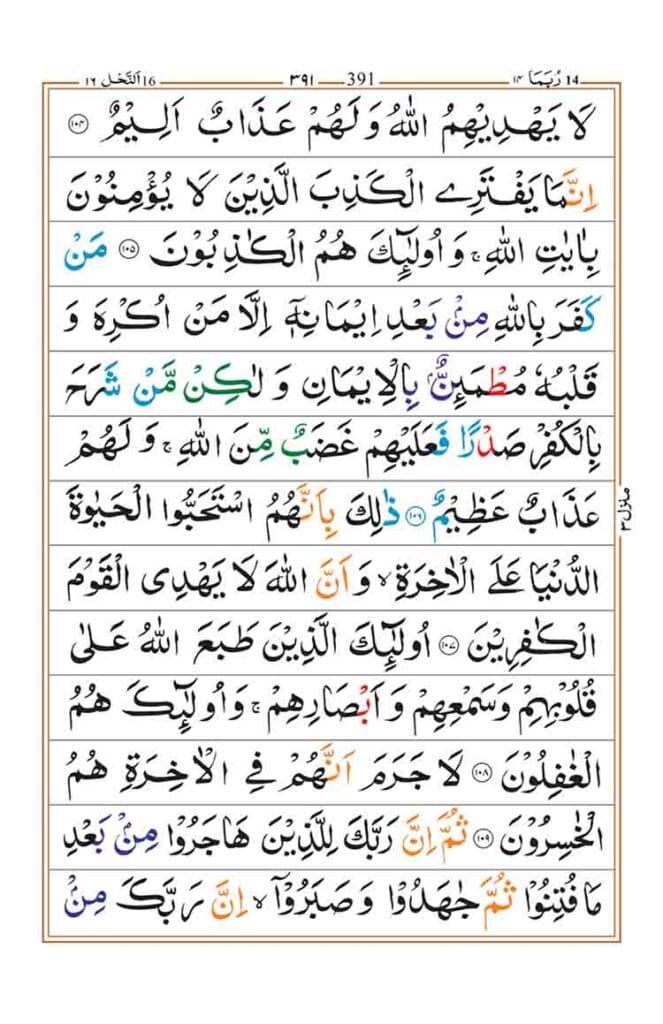 14 رُبَمَا ۱۴ 391 ۳۹۱ 16 اَلنَّحْل ۱۶
لَا يَهْدِيْهِمُ اللّٰهُ وَلَهُمْ عَذَابٌ اَلِيْمٌ ۝۱۰۴
اِنَّمَا يَفْتَرِى الْكَذِبَ الَّذِيْنَ لَا يُؤْمِنُوْنَ
بِاٰيٰتِ اللّٰهِ ۚ وَ اُولٰٓئِكَ هُمُ الْكٰذِبُوْنَ ۝۱۰۵ مَنْ
كَفَرَ بِاللّٰهِ مِنْۢ بَعْدِ اِيْمَانِهٖۤ اِلَّا مَنْ اُكْرِهَ وَ
قَلْبُهٗ مُطْمَئِنٌّۢ بِالْاِيْمَانِ وَ لٰكِنْ مَّنْ شَرَحَ
بِالْكُفْرِ صَدْرًا فَعَلَيْهِمْ غَضَبٌ مِّنَ اللّٰهِ ۚ وَ لَهُمْ
عَذَابٌ عَظِيْمٌ ۝۱۰۶ ذٰلِكَ بِاَنَّهُمُ اسْتَحَبُّوا الْحَيٰوةَ
الدُّنْيَا عَلَى الْاٰخِرَةِ ۙ وَ اَنَّ اللّٰهَ لَا يَهْدِى الْقَوْمَ
الْكٰفِرِيْنَ ۝۱۰۷ اُولٰٓئِكَ الَّذِيْنَ طَبَعَ اللّٰهُ عَلٰى
قُلُوْبِهِمْ وَسَمْعِهِمْ وَ اَبْصَارِهِمْ ۚ وَ اُولٰٓئِكَ هُمُ
الْغٰفِلُوْنَ ۝۱۰۸ لَا جَرَمَ اَنَّهُمْ فِى الْاٰخِرَةِ هُمُ
الْخٰسِرُوْنَ ۝۱۰۹ ثُمَّ اِنَّ رَبَّكَ لِلَّذِيْنَ هَاجَرُوْا مِنْۢ بَعْدِ
مَا فُتِنُوْا ثُمَّ جٰهَدُوْا وَ صَبَرُوْۤا ۙ اِنَّ رَبَّكَ مِنْۢ
منزل ۳